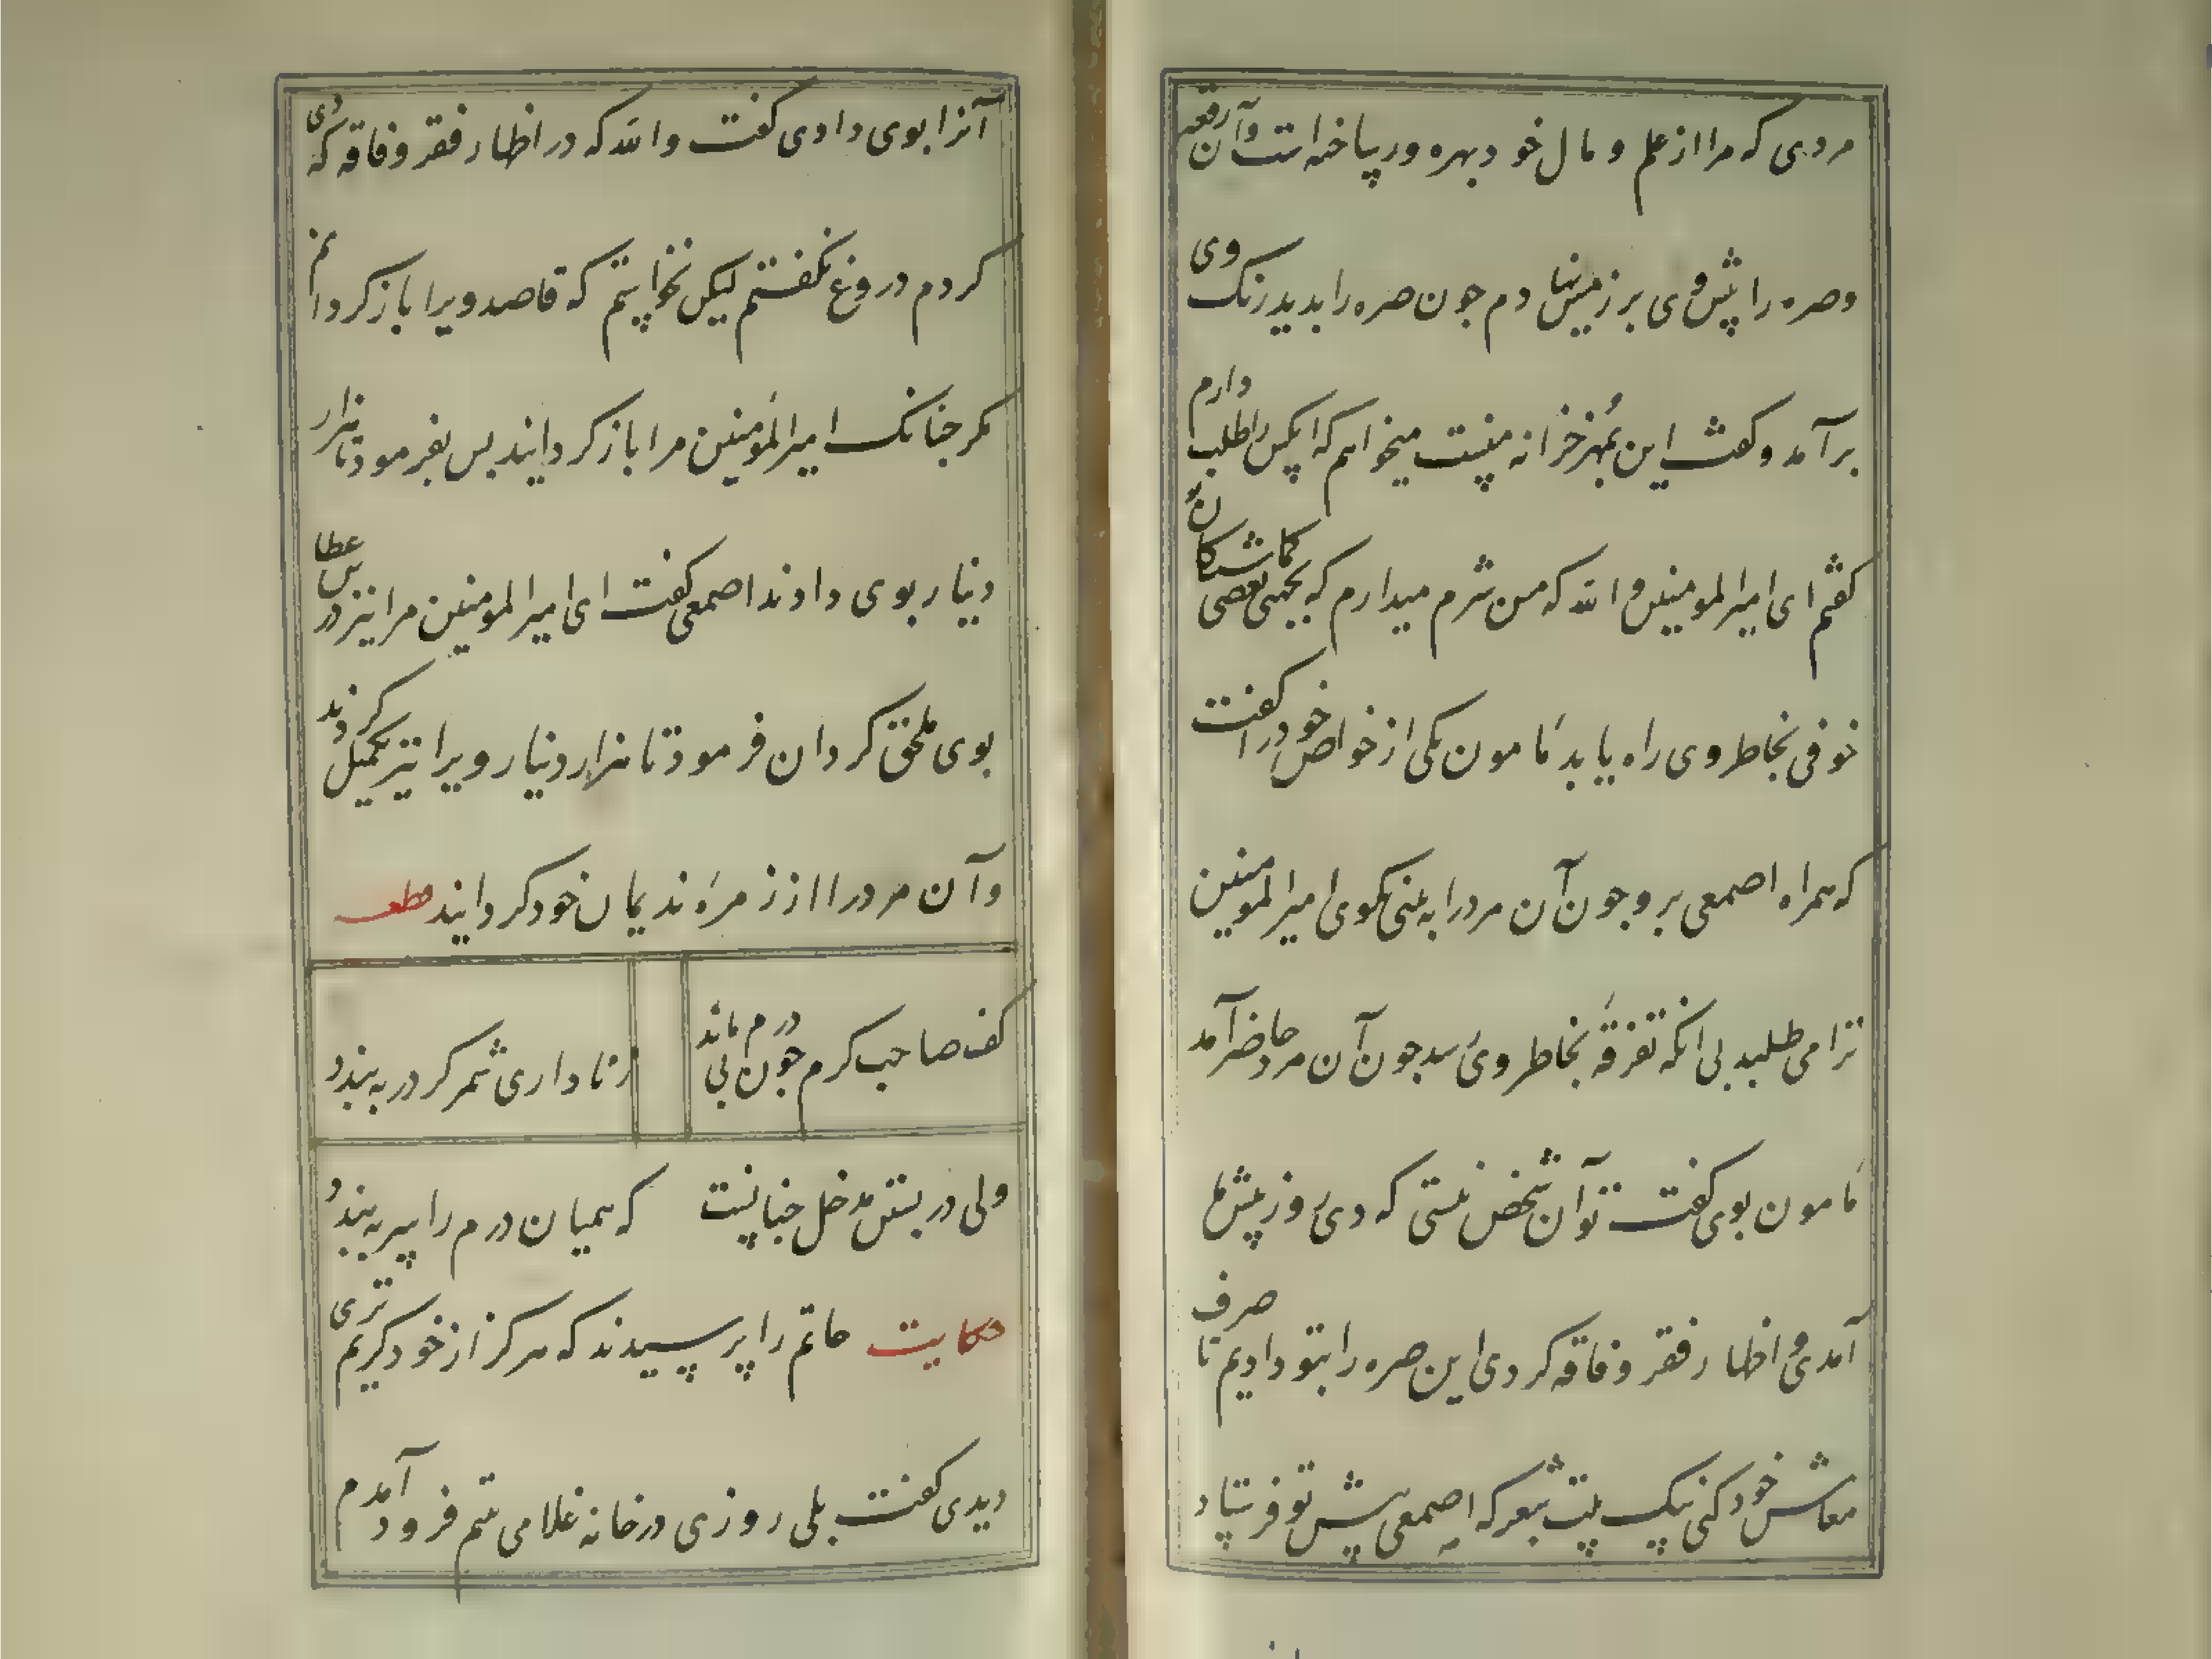 مردی که مرا از علم و مال خود بهره ور ساخته است و آن رقعه
و صره را پیش وی بر زمین نهادم جون صره را بدید رنک وی
برآمد و کفت این بمهر خزانه منست میخواهم که انکس را طلب دارم
کفتم ای امیرالمومنین والله که من شرم میدارم که بجهت بعضی کماشتکان
خوفی بخاطر وی راه یابد مامون یکی از خواص خود را کفت
که همراه اصمعی برو جون آن مرد را به بینی بکوی امیرالمومنین
ترا می طلبد بی انکه تفرقه بخاطر وی رسد جون آن مرد حاضر آمد
مامون بوی کفت تو آن شخص نیستی که دی روز پیش ما
آمدی و اظهار فقر و فاقه کردی این صره را بتو دادیم تا صرف
معاش خود کنی بیک بیت شعر که اصمعی پیش تو فرستاد
آنرا بوی دادی کفت والله که در اظهار فقر و فاقه که دی
کردم دروغ نکفتم لیکن نخواستم که قاصد ویرا باز کردانم
مکر جنانک امیرالمؤمنین مرا باز کردانید بس بفرمود تا هزار
دینار بوی دادند اصمعی کفت ای امیرالمومنین مرا نیز درین عطا
بوی ملحق کردان فرمود تا هزار دینار ویرا نیز تکمیل کردند
و آن مرد را از زمره ندیمان خود کردانید قطعه
کف صاحب کرم جون بی درم ماند ز ناداری شمر کر در به بندد
ولی در بستن مدخل جنانست که همیان درم را سر به بندد
حکایت حاتم را پرسیدند که هرکز از خود کریم تری
دیدی کفت بلی روزی در خانه غلامی یتیم فرود آمدم